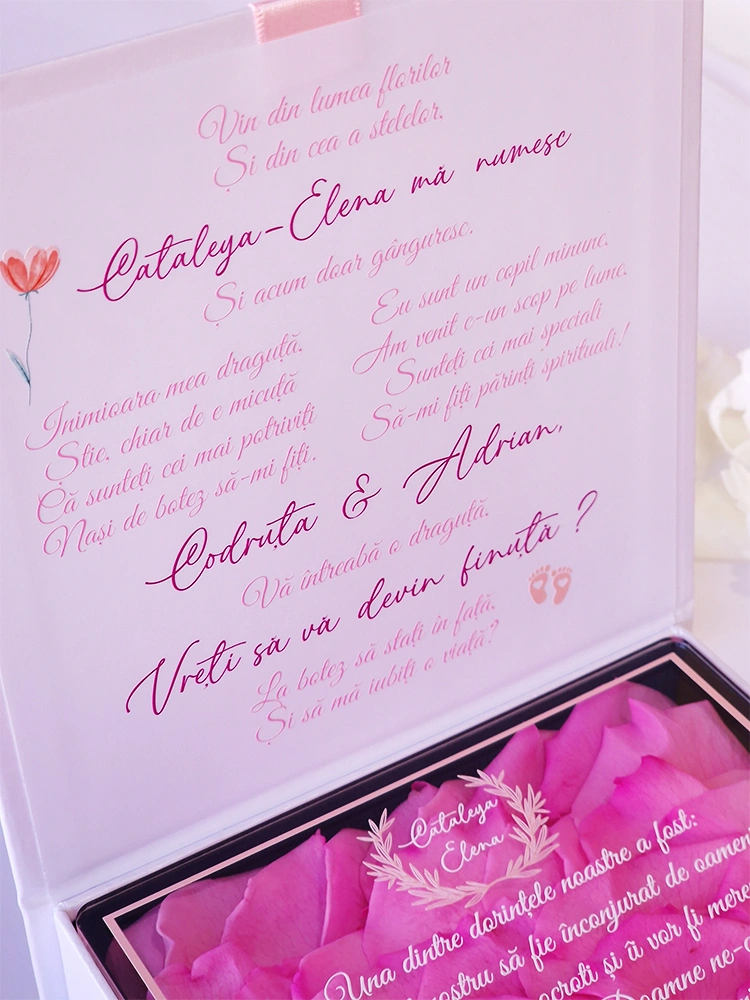 Vin din lumea florilor
Și din cea a stelelor,
Cataleya-Elena mă numesc
Și acum doar gânguresc.
Inimioara mea draguță,
Știe, chiar de e micuță
Că sunteți cei mai potriviți
Nași de botez să-mi fiți.
Eu sunt un copil minune,
Am venit c-un scop pe lume.
Sunteți cei mai speciali
Să-mi fiți părinți spirituali!
Codruța & Adrian,
Vă întreabă o draguță,
Vreți să vă devin finuță ?
La botez să stați în față,
Și să mă iubiți o viață?
Cataleya
Elena
Una dintre dorințele noastre a fost:
nostru să fie înconjurat de oamen
ocroti și îi vor fi mere
Doamne ne-a